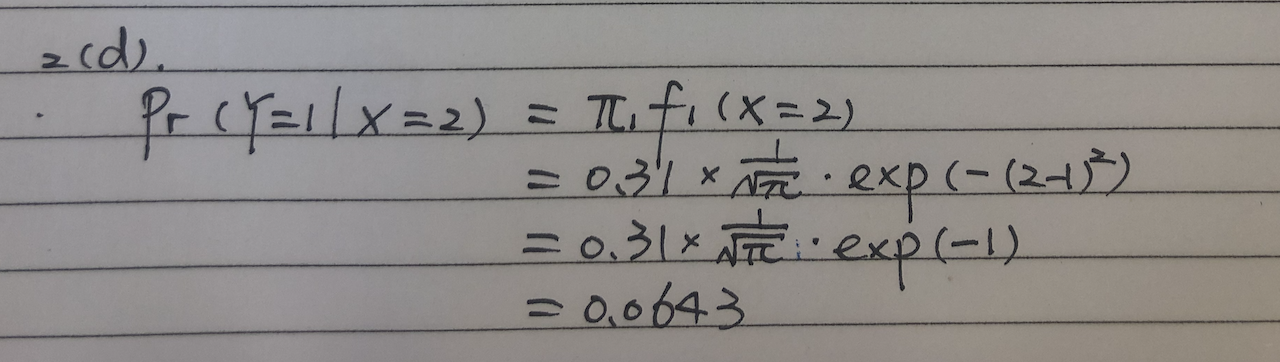 2(d).
Pr (Y=1 | X=2) = π₁ f₁ (X=2)
= 0.31 × 1/√π · exp (-(2-1)²)
= 0.31 × 1/√π · exp (-1)
= 0.0643